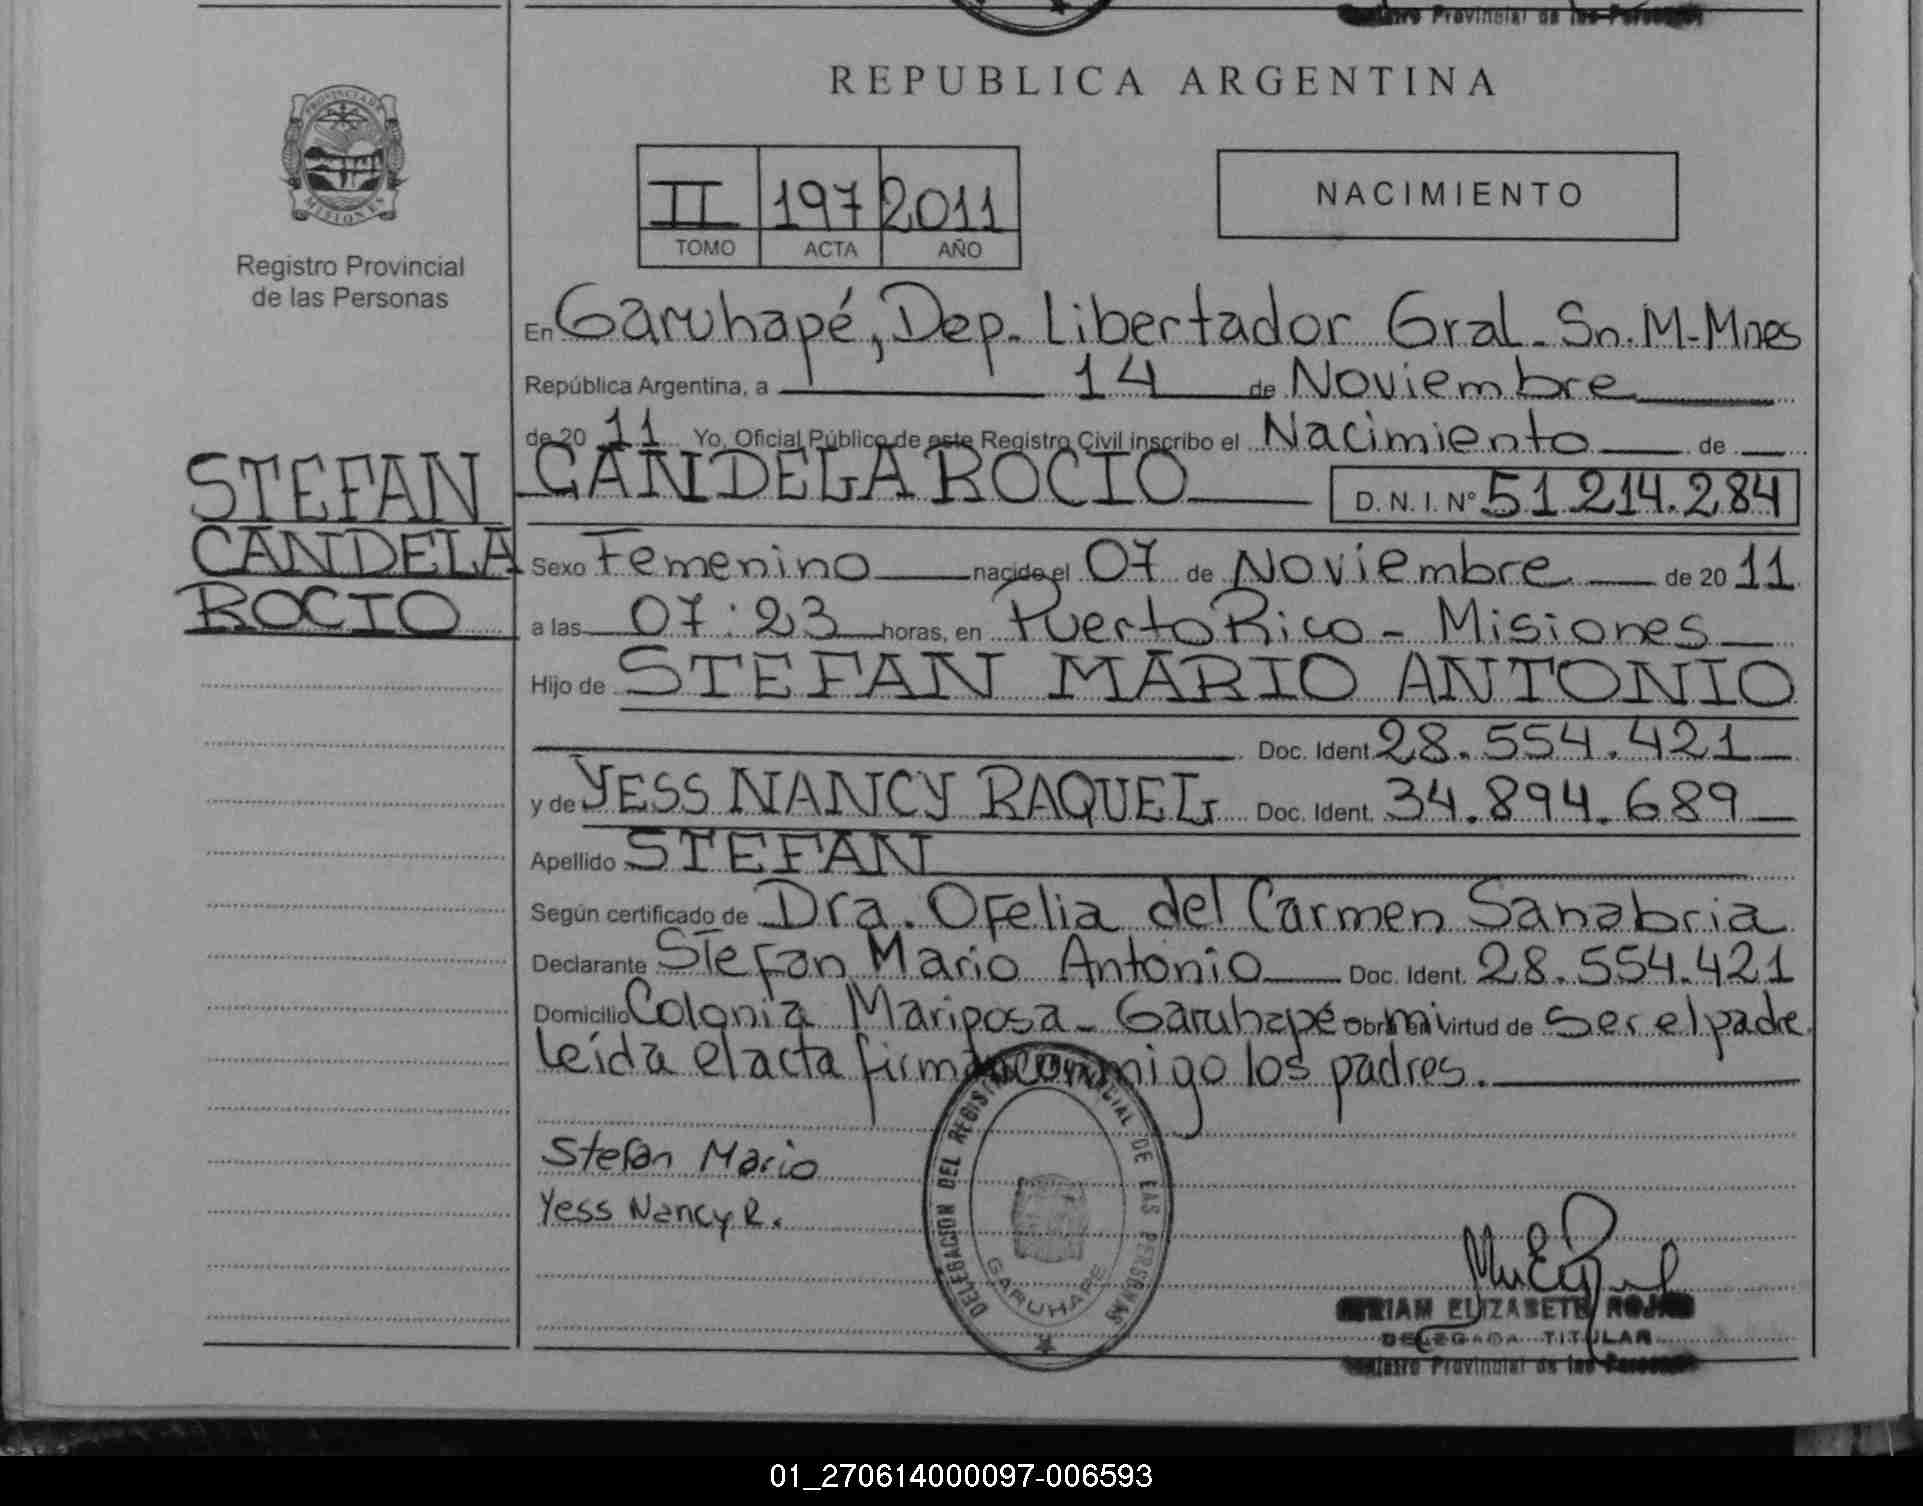 Provincial de las Personas
REPUBLICA ARGENTINA
PROVINCIA DE
MISIONES
Registro Provincial
de las Personas
II 197 2011
TOMO ACTA AÑO
NACIMIENTO
En Garuhapé, Dep. Libertador Gral. Sn. M-Mnes
República Argentina, a 14 de Noviembre
de 20 11 Yo, Oficial Público de este Registro Civil inscribo el Nacimiento de
STEFAN
CANDELA
ROCIO
CANDELA ROCIO D. N. I. Nº 51.214.284
Sexo Femenino nacido el 07 de Noviembre de 20 11
a las 07:23 horas, en Puerto Rico - Misiones
Hijo de STEFAN MARIO ANTONIO
Doc. Ident. 28.554.421
y de YESS NANCY RAQUEL Doc. Ident. 34.894.689
Apellido STEFAN
Según certificado de Dra. Ofelia del Carmen Sanabria
Declarante Stefan Mario Antonio Doc. Ident. 28.554.421
Domicilio Colonia Mariposa - Garuhapé Obra en virtud de Ser el padre
leída el acta firman conmigo los padres.
Stefan Mario
Yess Nancy R.
DELEGACION DEL REGISTRO PROVINCIAL DE LAS PERSONAS
GARUHAPE
ELIZABETH ROJAS
DELEGADA TITULAR
Provincial de las
01_270614000097-006593